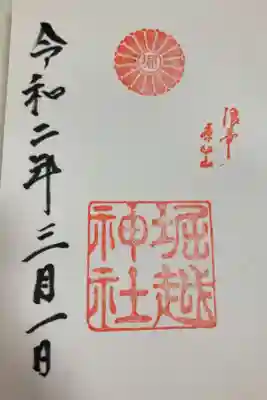 堀越
神社
令和二年三月一日